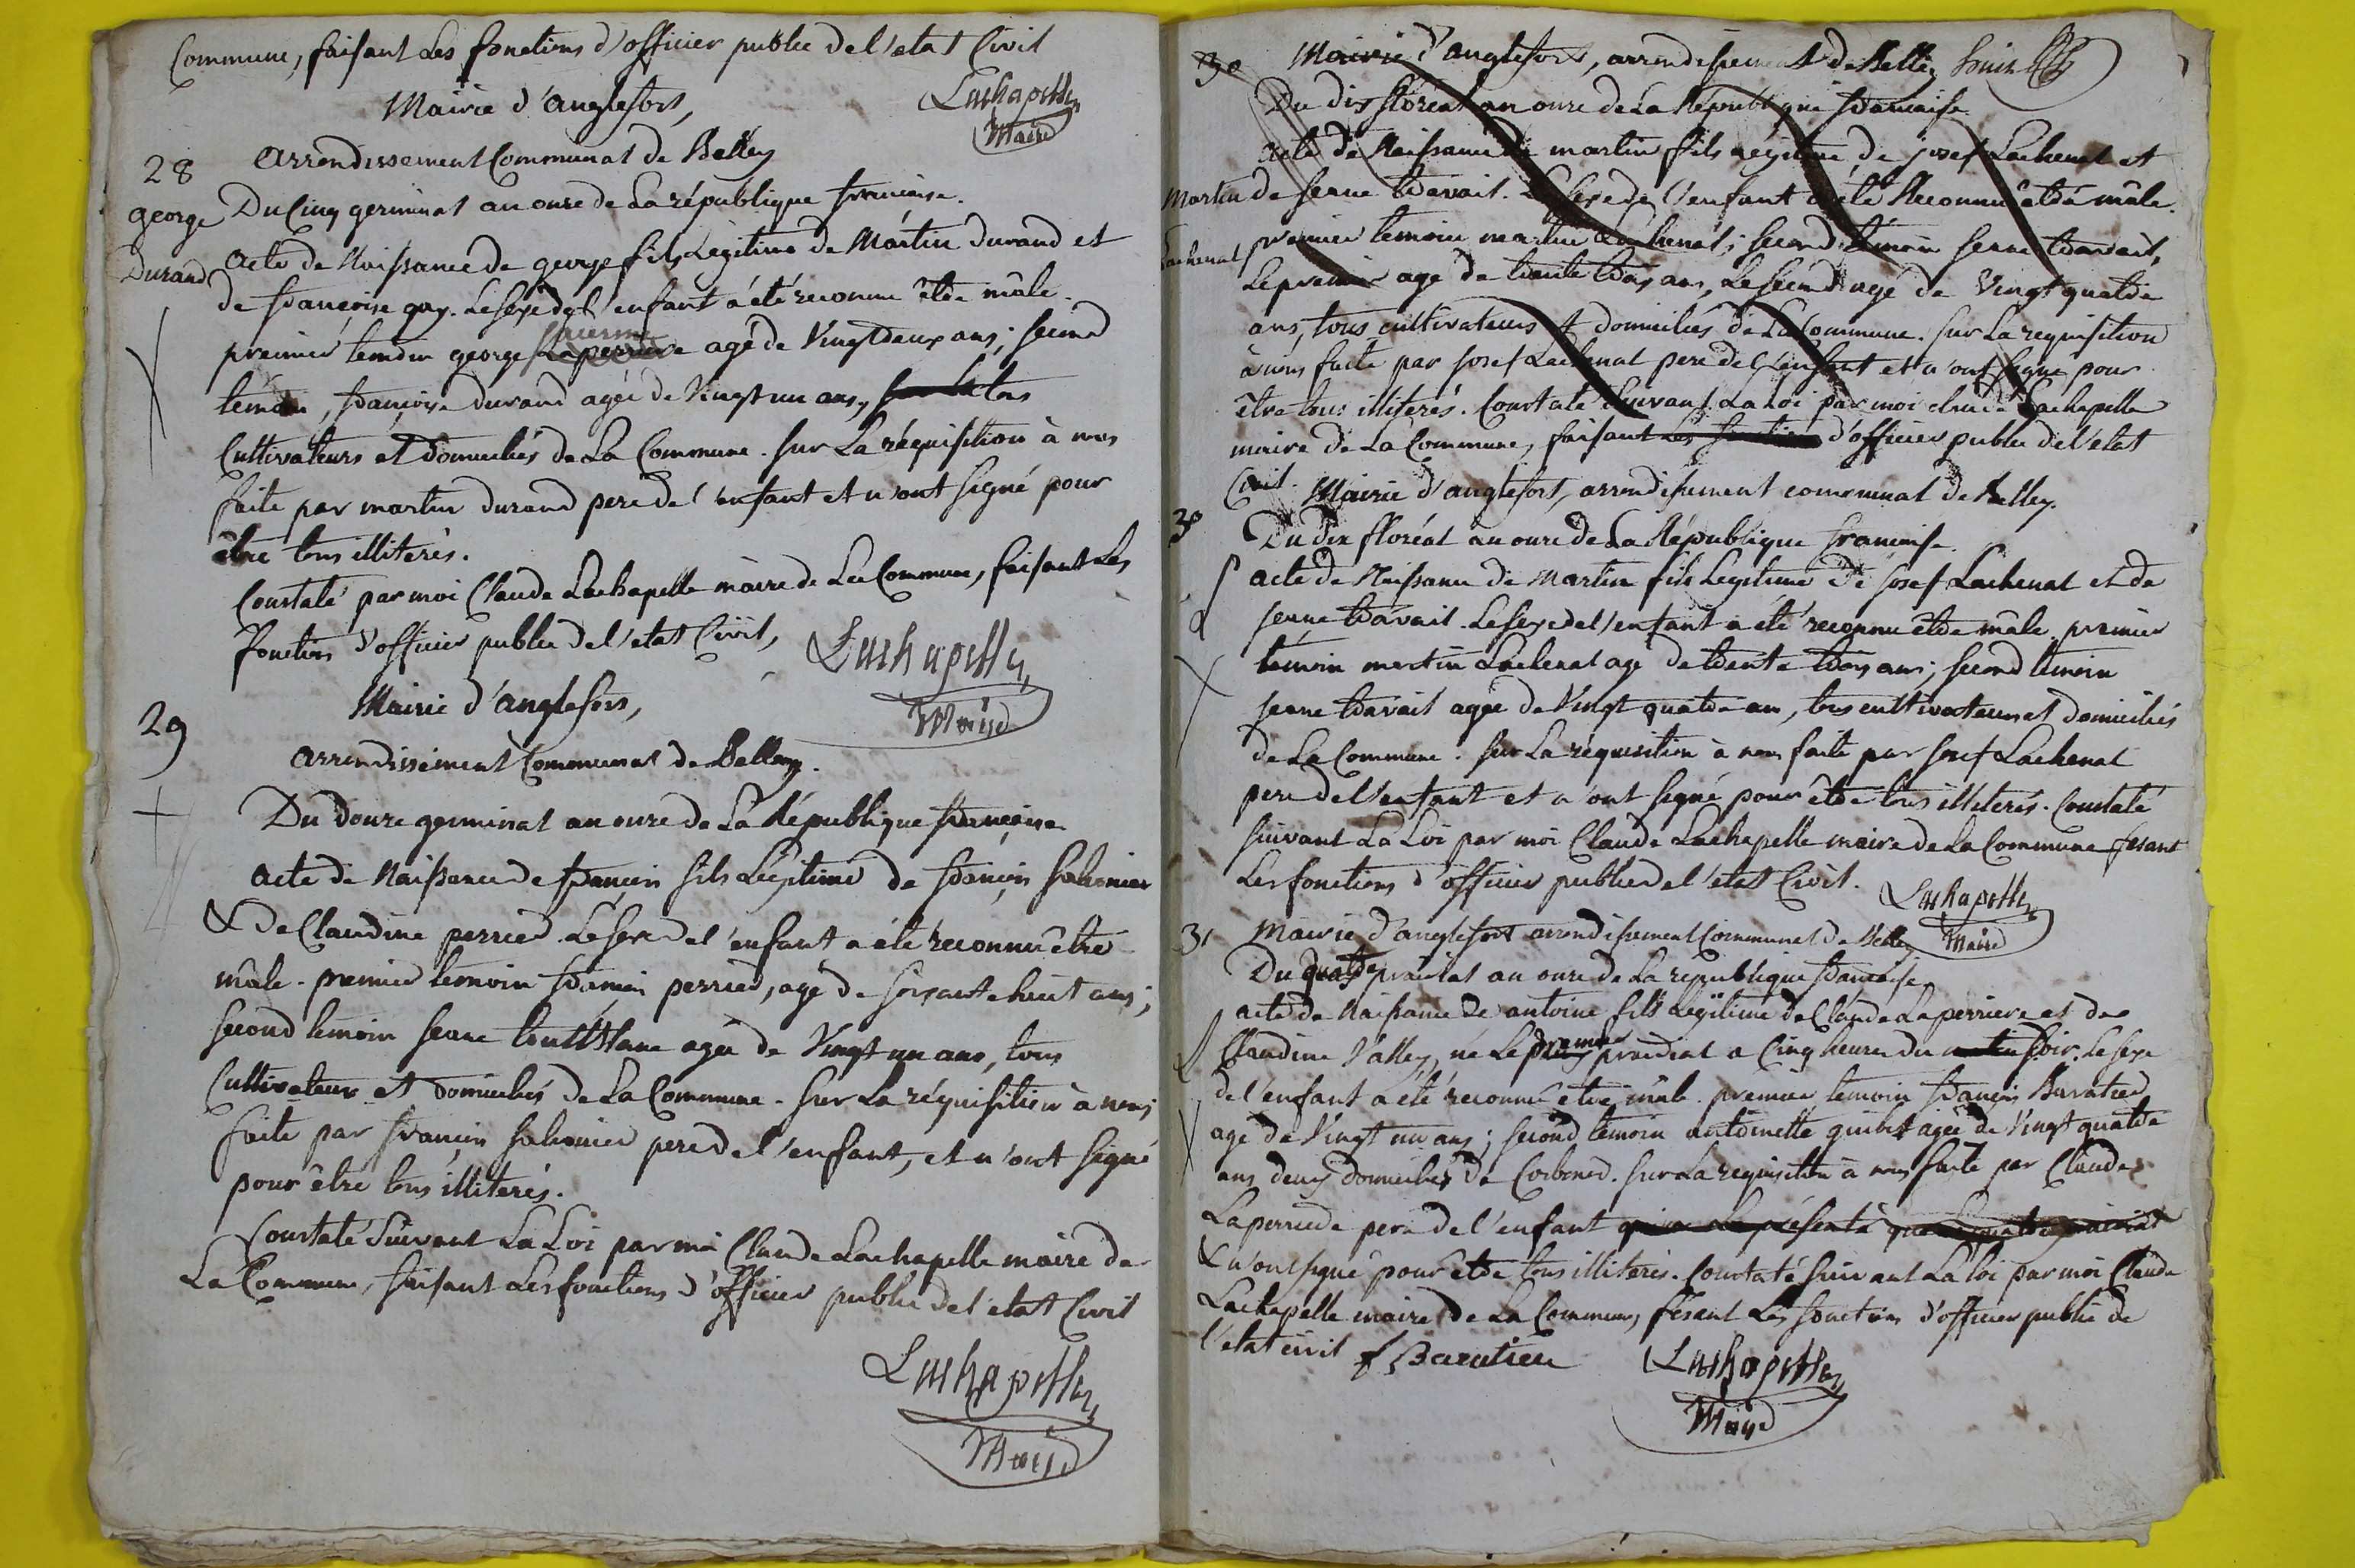 Commune, faisant Les fonctions d'officier public de l'etat Civil
Lachapelle
Maire
Mairie d'anglefort,
28 arrondissement Communal de Belley
george Du Cinq germinal an onze de La république française.
Durand acte de Naissance de george fils Légitime de Martin durand et
de françoise gay. Le sexe de l'enfant a été reconnu être mâle.
premier temoin george Laperriere agé de Vingt deux ans; second
témoin, françoise durand agée de Vingt un ans, tous
Cultivateurs et domiciliés de La Commune. Sur La réquisition à nous
faite par martin durand pere de l'enfant et n'ont signé pour
être tous illiterés.
Constaté par moi Claude Lachapelle maire de La Commune, faisant Les
fonctions d'officier public de l'etat Civil,
Lachapelle
Maire
29 Mairie d'anglefort,
arrondissement Communal de Belley.
Du douze germinal an onze de La République françoise
acte de Naissance de françois fils Légitime de françois
& de Claudine perrier. Le sexe de l'enfant a été reconnu être
mâle. premier temoin françois perrier, agé de soixante huit ans;
second temoin jeane agée de Vingt un ans, tous
Cultivateurs et domiciliés de La Commune. Sur La réquisition à nous
faite par françois pere de l'enfant, et n'ont signé
pour être tous illiterés.
Constaté Suivant La Loi par moi Claude Lachapelle maire de
La Commune, faisant Les fonctions d'officier public de l'etat Civil
Lachapelle
Maire
30 Mairie d'anglefort, arrondissement de Belley
Du dix floréal an onze de La République française
acte de Naissance de martin fils légitime de josef Lachenal et
Martin de jeane travail. Le sexe de l'enfant a été Reconnu être mâle.
Lachenal premier temoin martin Lachenal; second témoin jeane travail,
Le premier agé de trente trois ans, Le second agé de Vingt quatre
ans, tous cultivateurs & domiciliés de La Commune. Sur La requisition
à nous faite par josef Lachenal pere de l'enfant et n'ont signé pour
être tous illiterés. Constaté Suivant La Loi par moi claude Lachapelle
maire de La Commune, faisant les fonctions d'officier public de l'etat
Civil.
Mairie d'anglefort, arrondissement communal de belley.
30 Du dix floréal an onze de La République française.
acte de Naissance de Martin fils Legitime de josef Lachenal et de
jeane travail. Le sexe de l'enfant a été reconnu être mâle. premier
temoin martin Lachenal agé de trente trois ans; second temoin
jeane travail agée de Vingt quatre ans, tous cultivateurs et domiciliés
de La Commune. Sur La réquisition à nous faite par josef Lachenal
pere de l'enfant et n'ont signé pour être tous illiterés. Constaté
suivant La Loi par moi Claude Lachapelle maire de La Commune fesant
Les fonctions d'officier public de l'etat Civil.
Lachapelle
Maire
31 Mairie d'anglefort arrondissement Communal de Belley
Du quatre prairial an onze de La république française
acte de Naissance de antoine fils Légitime de Claude Laperriere et de
Claudine Valley, né Le premier prairial a Cinq heures du matin soir. Le sexe
de l'enfant a été reconnu être mâle. premier temoin françois Baratier
agé de Vingt un ans; second temoin antoinette agée de Vingt quatre
ans deux domiciliés de Corbonod. Sur La requisition à nous faite par Claude
Laperriere pere de l'enfant qui a Le présenté
& n'ont signé pour être tous illiterés. Constaté suivant La Loi par moi Claude
Lachapelle maire de La Commune, fesant Les fonctions d'officier public de
l'etat civil f Baratier
Lachapelle
Maire